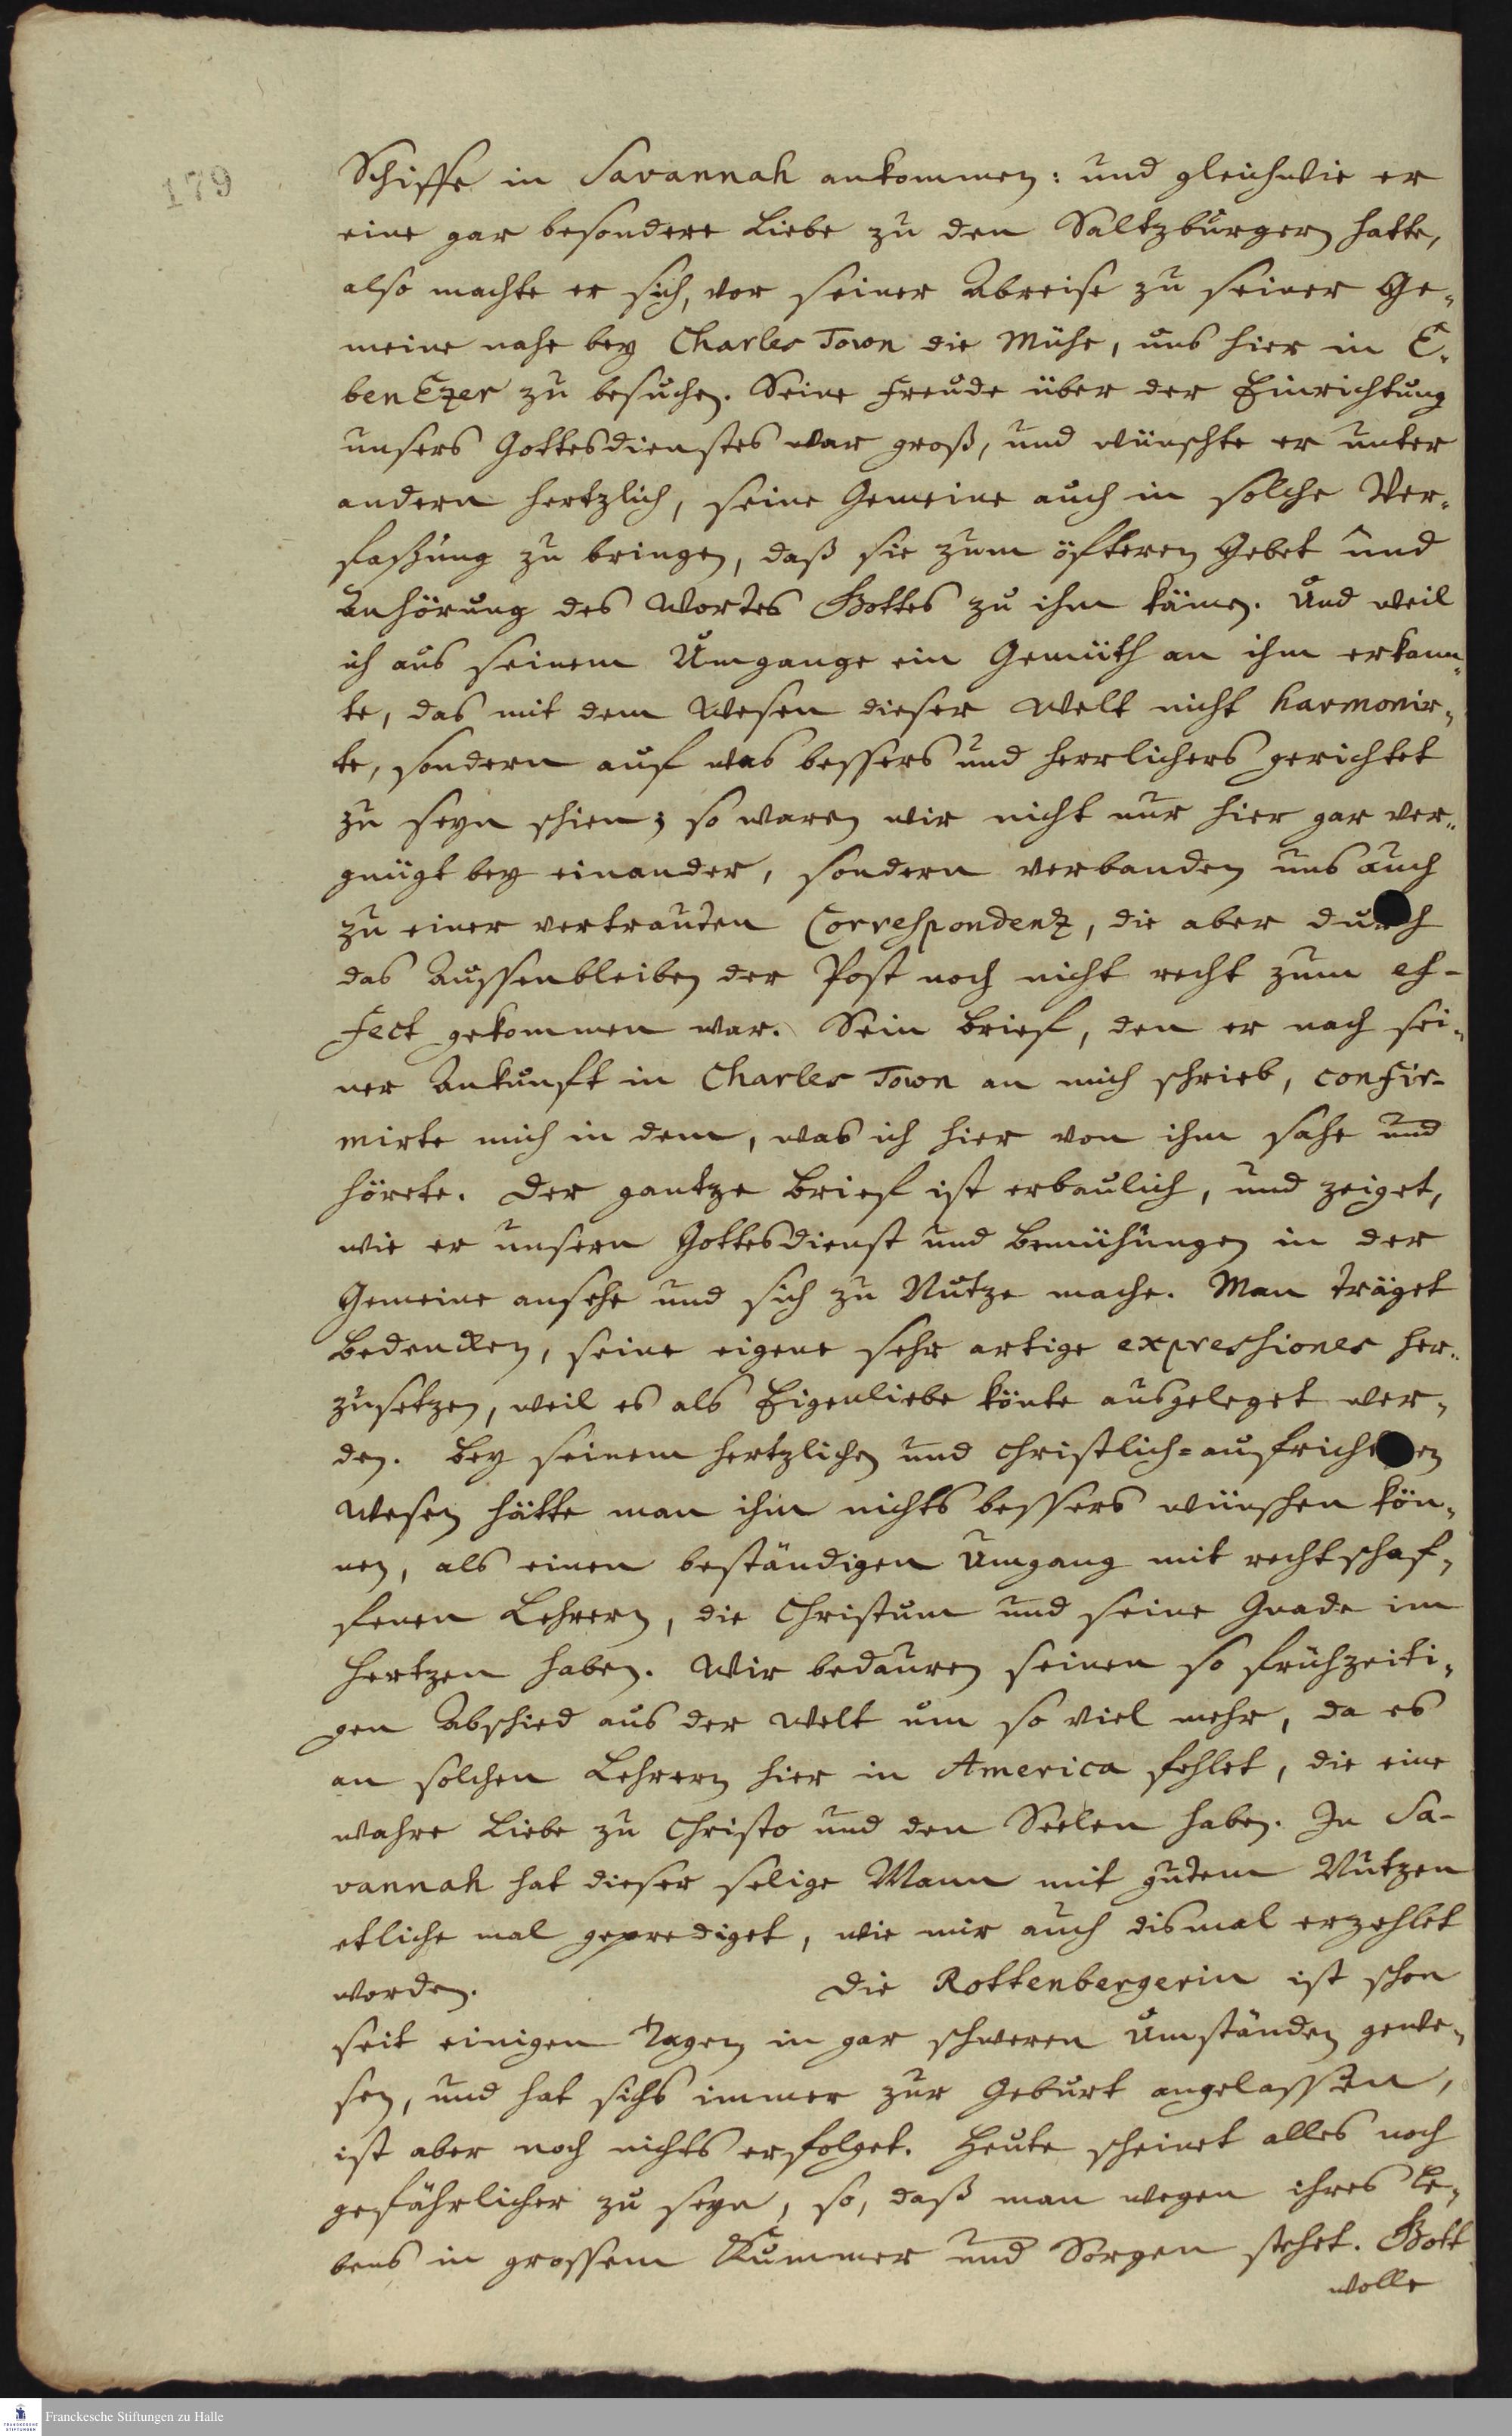 179
Schiffe in Savannah ankommen: und gleichwie er
eine gar besondere Liebe zu den Saltzburgern hatte,
also machte er sich, vor seiner Abreise zu seiner Ge-
meine nahe bey Charles Town die Mühe, uns hier in E-
benEzer zu besuchen. Seine Freude über der Einrichtung
unsers Gottesdienstes war groß, und wünschte er unter
andern hertzlich, seine Gemeine auch in solche Ver-
faßung zu bringen, daß sie zum öfteren Gebet und
Anhörung des Wortes Gottes zu ihm kämen. Und weil
ich aus seinem Umgange ein Gemüth an ihm erkann-
te, das mit dem Wesen dieser Welt nicht harmonir-
te, sondern auf was bessers und herrlichers gerichtet
zu seyn schien; so waren wir nicht nur hier gar ver-
gnügt bey einander, sondern verbanden uns auch
zu einer vertrauten Correspondenz, die aber durch
das Aussenbleiben der Post noch nicht recht zum ef-
fect gekommen war. Sein Brief, den er nach sei-
ner Ankunft in Charles Town an mich schrieb, confir-
mirte mich in dem, was ich hier von ihm sahe und
hörete. Der gantze Brief ist erbaulich, und zeiget,
wie er unsern Gottesdienst und Bemühungen in der
Gemeine ansehe und sich zu Nutze mache. Man träget
Bedencken, seine eigene sehr artige expressiones her-
zusetzen, weil es als Eigenliebe könte ausgeleget wer-
den. Bey seinem hertzlichen und christlich-aufrichtigen
Wesen hätte man ihm nichts bessers wünschen kön-
nen, als einen beständigen Umgang mit rechtschaf-
fenen Lehrern, die Christum und seine Gnade im
Hertzen haben. Wir bedauren seinen so frühzeiti-
gen Abschied aus der Welt um so viel mehr, da es
an solchen Lehrern hier in America fehlet, die eine
wahre Liebe zu Christo und den Seelen haben. In Sa-
vannah hat dieser selige Mann mit gutem Nutzen
etliche mal geprediget, wie mir auch dismal erzehlet
worden. Die Rottenbergerin ist schon
seit einigen Tagen in gar schweren Umständen gewe-
sen, und hat sichs immer zur Geburt angelassen,
ist aber noch nichts erfolget. Heute scheinet alles noch
gefährlicher zu seyn, so, daß man wegen ihres Le-
bens in grossem Kummer und Sorgen stehet. Gott
wolle
Franckesche Stiftungen zu Halle